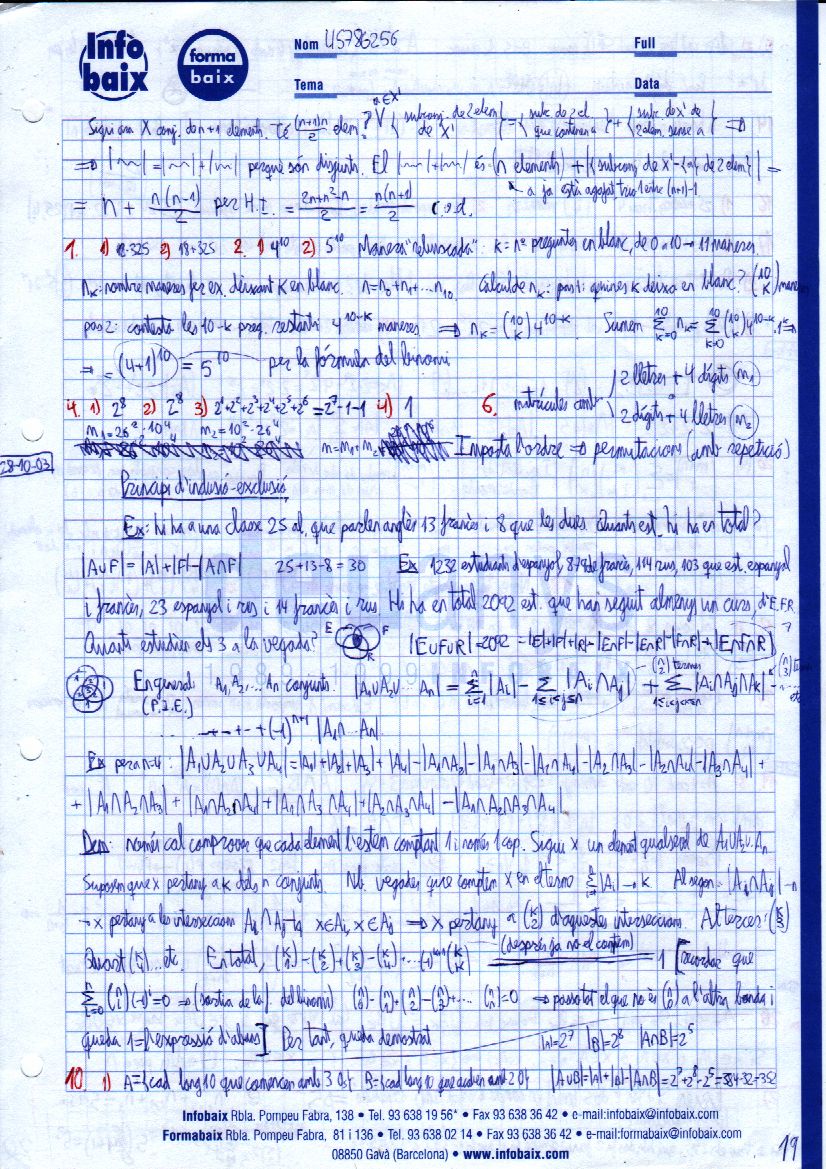 Info baix
forma baix
Nom U5786256
Full
Tema
Data
Sigui ara X conj. de n+1 elements. Té (n+1)n/2 elem? ∀ a∈X' {subconj. de 2 elem de X'} = {subc. de 2 el. que contenen a} + {subc. de X' de 2 elem. sense a} ⇒
⇒ |~~| = |~~| + |~~| perquè són disjunts. El |~~| + |~~| és (n elements) + |{subconj de X'-{a} de 2 elem}| =
a ja està agafat trio 1 entre (n+1)-1
= n + n(n-1)/2 per H.I. = 2n+n²-n/2 = n(n+1)/2 c.q.d.
1. 1) 18·325 2) 18+325 2. 1) 4^10 2) 5^10 Manera "rebuscada": k = nº preguntes en blanc, de 0 a 10 → 11 maneres
n_k: nombre maneres fer ex. deixant k en blanc. n = n_0+n_1+...n_10. Càlcul de n_k: pas 1: quines k deixo en blanc? (10 k) maneres
pas 2: contestá les 10-k preg. restants 4^10-k maneres ⇒ n_k = (10 k) 4^10-k. Sumem Σ k=0 10 n_k = Σ k=0 10 (10 k) 4^10-k · 1^k ⇒
⇒ = (4+1)^10 = 5^10 per la fórmula del binomi
4. 1) 2^8 2) 2^8 3) 2^1+2^2+2^3+2^4+2^5+2^6 = 2^7-1-1 4) 1 6. matrícules amb { 2 lletres + 4 dígits (m_1) o 2 dígits + 4 lletres (m_2)
m_1 = 26^2·10^4 m_2 = 10^2·26^4
n = m_1+m_2 Importa l'ordre ⇒ permutacions (amb repetició)
28-10-03
Principi d'inclusió-exclusió
Ex: hi ha a una classe 25 al. que parlen anglès 13 francès i 8 que les dues. Quants est. hi ha en total?
|A∪F| = |A|+|F|-|A∩F| 25+13-8 = 30 Ex 1232 estudiants d'espanyol, 879 de francès, 114 rus, 103 que est. espanyol
i francès, 23 espanyol i rus i 14 francès i rus. Hi ha en total 2092 est. que han seguit almenys un curs d'E.F.R.
Quants estudien els 3 a la vegada? E F R |E∪F∪R| = 2092 = |E|+|F|+|R|-|E∩F|-|E∩R|-|F∩R|+|E∩F∩R| 7
En general A_1, A_2, ... A_n conjunts. |A_1∪A_2∪ ... A_n| = Σ i=1 n |A_i| - Σ 1≤i<j≤n |A_i∩A_j| (n 2) termes + Σ 1≤i<j<k≤n |A_i∩A_j∩A_k| (n 3) - ... etc
(P.I.E.) ... -+-+-+(-1)^n+1 |A_1∩...A_n|
Ex per a n=4: |A_1∪A_2∪A_3∪A_4| = |A_1|+|A_2|+|A_3|+|A_4|-|A_1∩A_2|-|A_1∩A_3|-|A_1∩A_4|-|A_2∩A_3|-|A_2∩A_4|-|A_3∩A_4| +
+ |A_1∩A_2∩A_3| + |A_1∩A_2∩A_4| + |A_1∩A_3∩A_4| + |A_2∩A_3∩A_4| - |A_1∩A_2∩A_3∩A_4|.
Dem: només cal comprovar que cada element l'estem comptant 1 i només 1 cop. Sigui x un element qualsevol de A_1∪A_2∪..A_n
Suposem que x pertany a k dels n conjunts. Nb. vegades que comptem x en el terme Σ i=1 n |A_i| → k Al segon = |A_i∩A_j| →
→ x pertany a les interseccions A_i∩A_j tq x∈A_i, x∈A_j ⇒ x pertany a (k 2) d'aquestes interseccions. Al tercer: (k 3)
Quart (k 4)... etc. En total, (k 1)-(k 2)+(k 3)-(k 4)+...(-1)^k+1 (k k) (després ja no el comptem) 1 [recordar que
Σ i=0 n (n i)(-1)^i = 0 ⇒ (sortia de la f. del binomi) (n 0)-(n 1)+(n 2)-(n 3)+... (n n) = 0 ⇒ passo tot el que no és (n 0) a l'altra banda i
queda 1 = l'expressió d'abans] Per tant, queda demostrat |A|=2^7 |B|=2^8 |A∩B|=2^5
10. 1) A={cad long 10 que comencen amb 3 0s} B={cad long 10 que acaben amb 2 0} |A∪B| = |A|+|B|-|A∩B| = 2^7+2^8-2^5 = 384-32 = 352
Infobaix Rbla. Pompeu Fabra, 138 • Tel. 93 638 19 56* • Fax 93 638 36 42 • e-mail:infobaix@infobaix.com
Formabaix Rbla. Pompeu Fabra, 81 i 136 • Tel. 93 638 02 14 • Fax 93 638 36 42 • e-mail:formabaix@infobaix.com
08850 Gavà (Barcelona) • www.infobaix.com
19